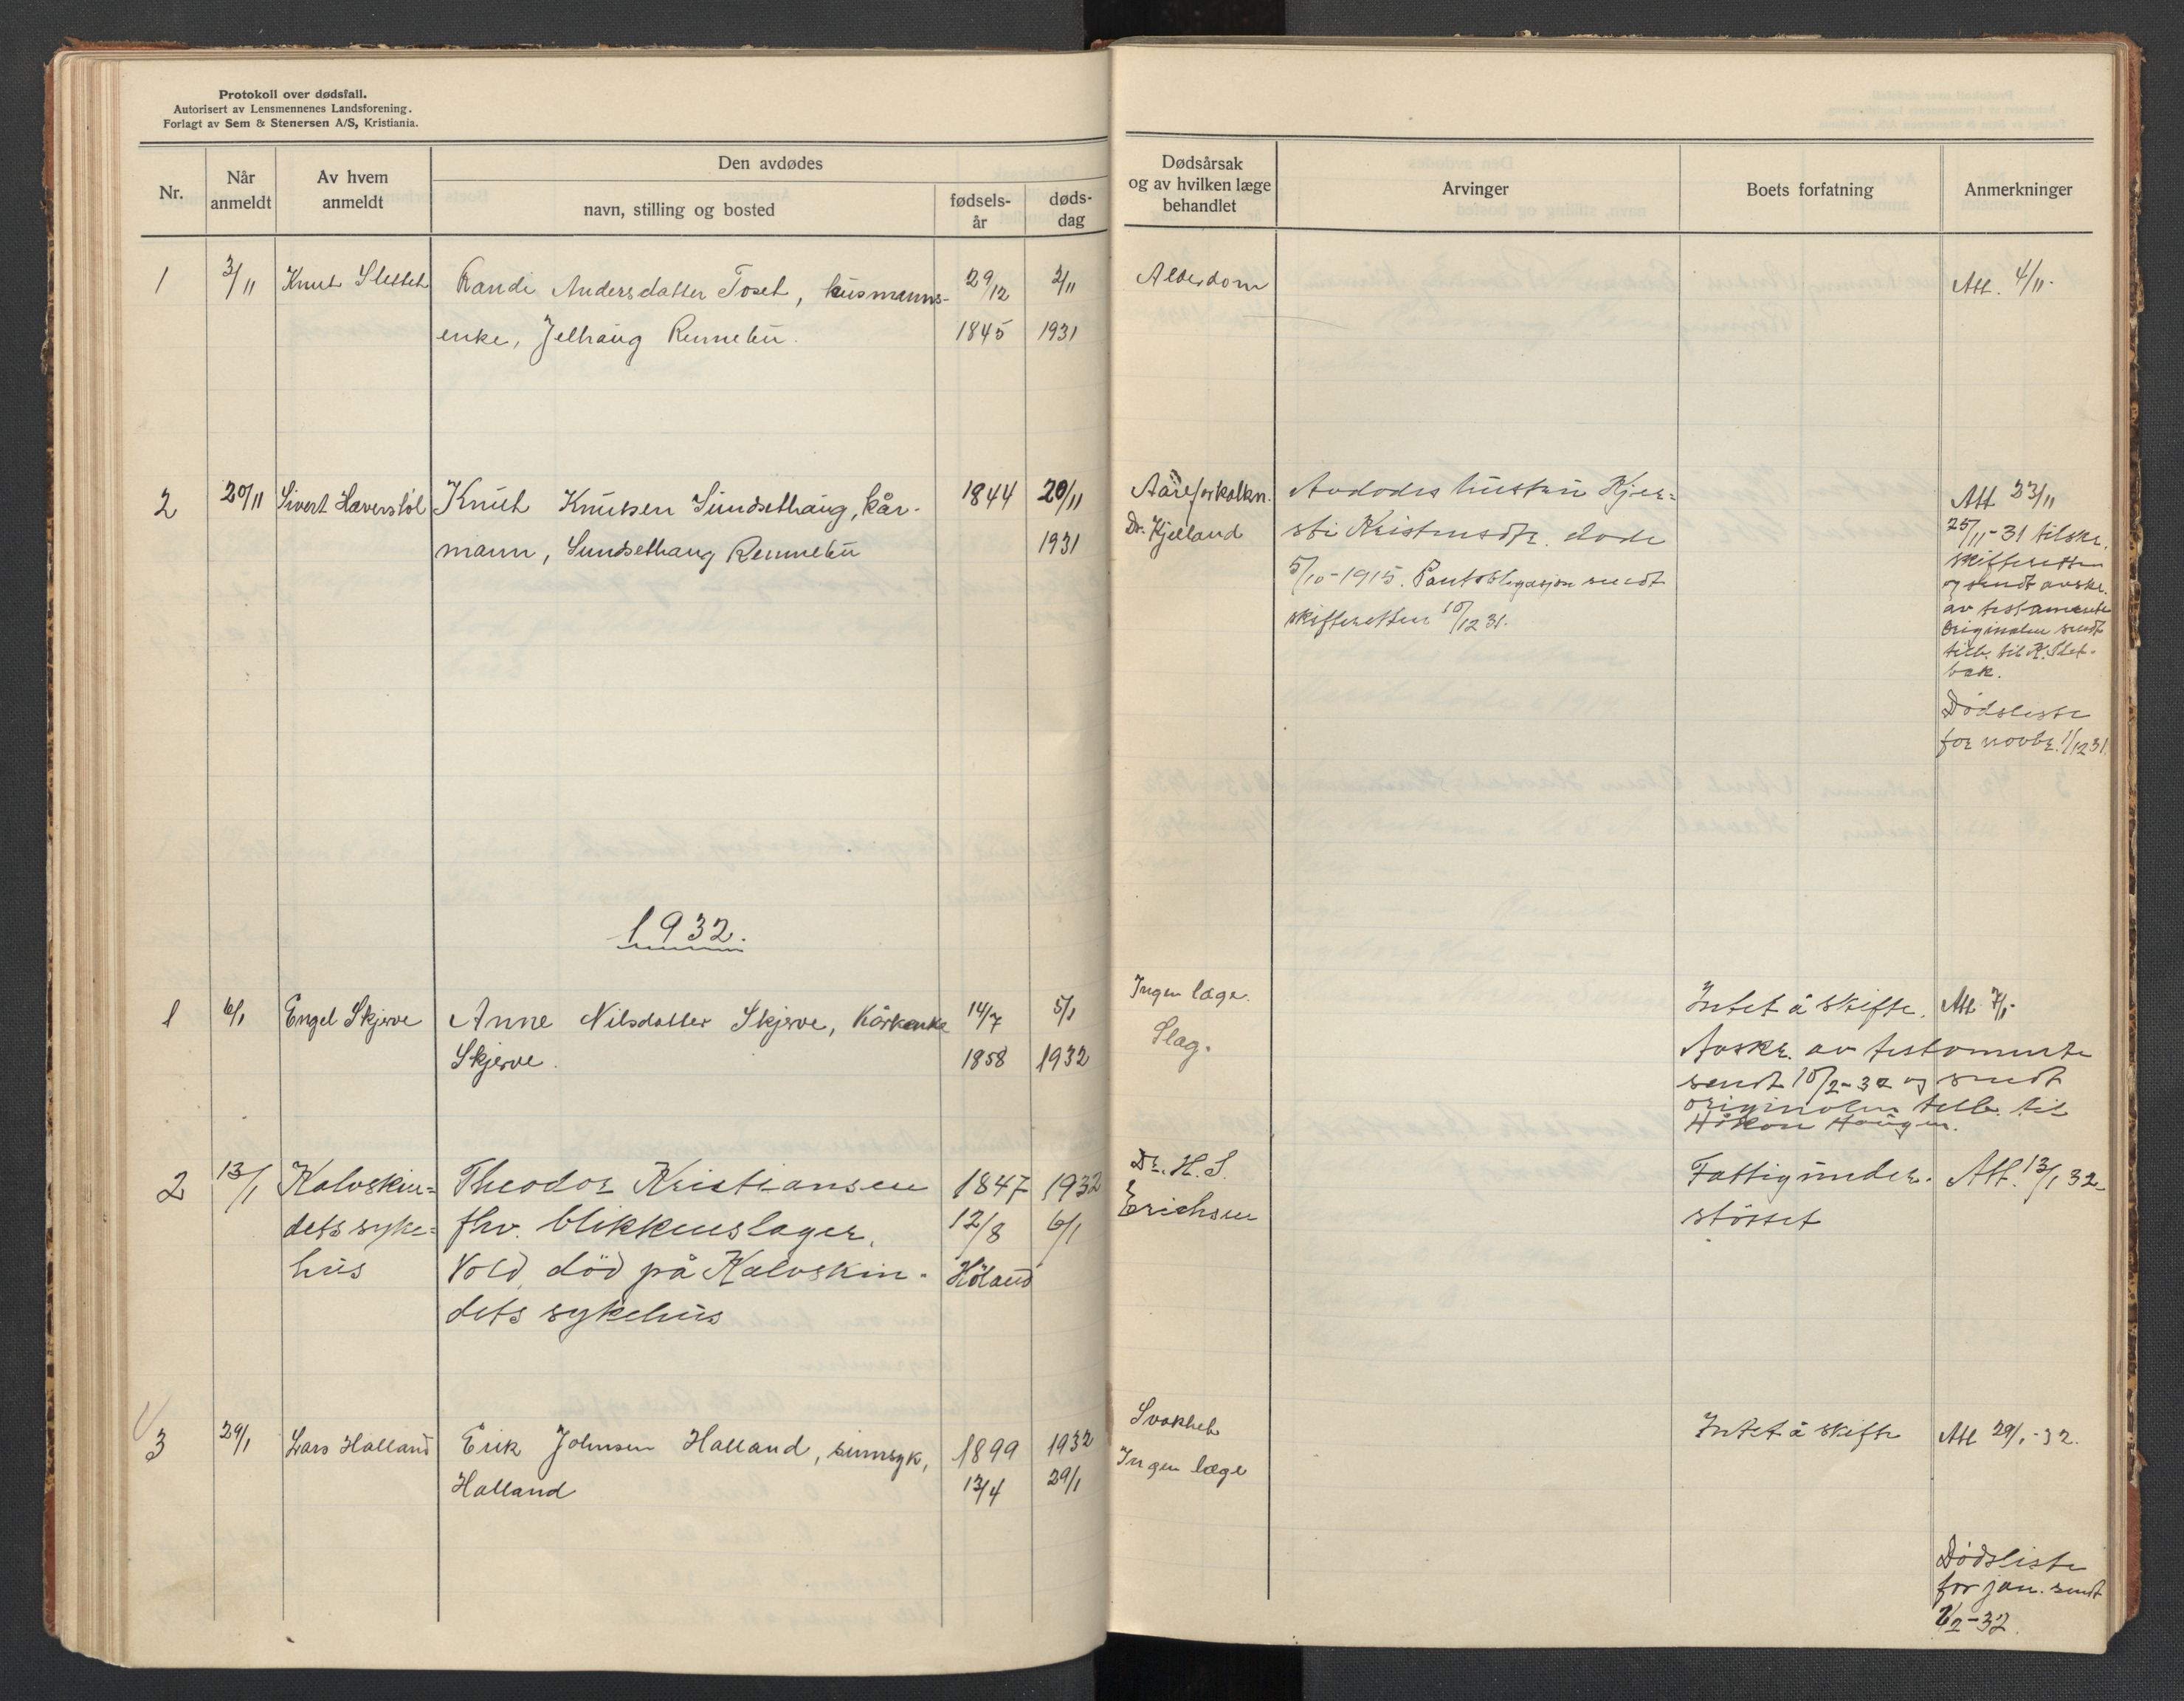 Protokoll over dødsfall.
Autorisert av Lensmennenes Landsforening.
Forlagt av Sem & Stenersen A/S, Kristiania.
Nr.
Når
anmeldt
Av hvem
anmeldt
Den avdødes
navn, stilling og bosted
fødsels-
år
døds-
dag
Dødsårsak
og av hvilken læge
behandlet
Arvinger
Boets forfatning
Anmerkninger
1 3/11 Knut Slettet Randi Andersdatter Toset, husmanns- 29/12 2/11 Alderdom Att. 4/11.
enke, Jelhaug Rennebu. 1845 1931
2 20/11 Sivert Haverstøl Knut Knutsen Sundsethaug, kår- 1844 20/11
mann, Sundsethaug Rennebu 1931
Aareforkalkn.
Dr. Kjelland
Avdødes hustru Kjer=
sti Kristensdtr. døde
5/10-1915. Pantobligasjon sendt
skifteretten 10/12 31.
Att 23/11
25/11-31 tilskr.
skifteretten
og sendt avskr.
av testamente
Originalen sendt
tilb. til K. Slet-
bak.
Dødsliste
for novbr. 1/12 31.
1932.
1 6/1 Engel Skjerve Anne Nilsdatter Skjerve, Kårenke 14/7 5/1
Skjerve. 1858 1932
Ingen læge.
Slag.
Intet å skifte. Att 7/1.
Avskr. av testamente
sendt 10/2-32 og sendt
originalen tilb. til
Håkon Haugen.
2 13/1 Kalvskin= Theodor Kristiansen 1847 1932
dets syke= fhv. blikkenslager, 12/8 6/1
hus Vold, död på Kalvskin- Höland
dets sykehus
Dr. H. S.
Erichsen
Fattigunder- Att. 13/1 32.
støttet
3 29/1 Lars Halland Erik Johnsen Halland, sinnsyk, 1899 1932
Halland 13/4 29/1
Svakhet
Ingen læge
Intet å skifte Att 29/1-32.
Dødsliste
for jan. sendt
1/2-32.